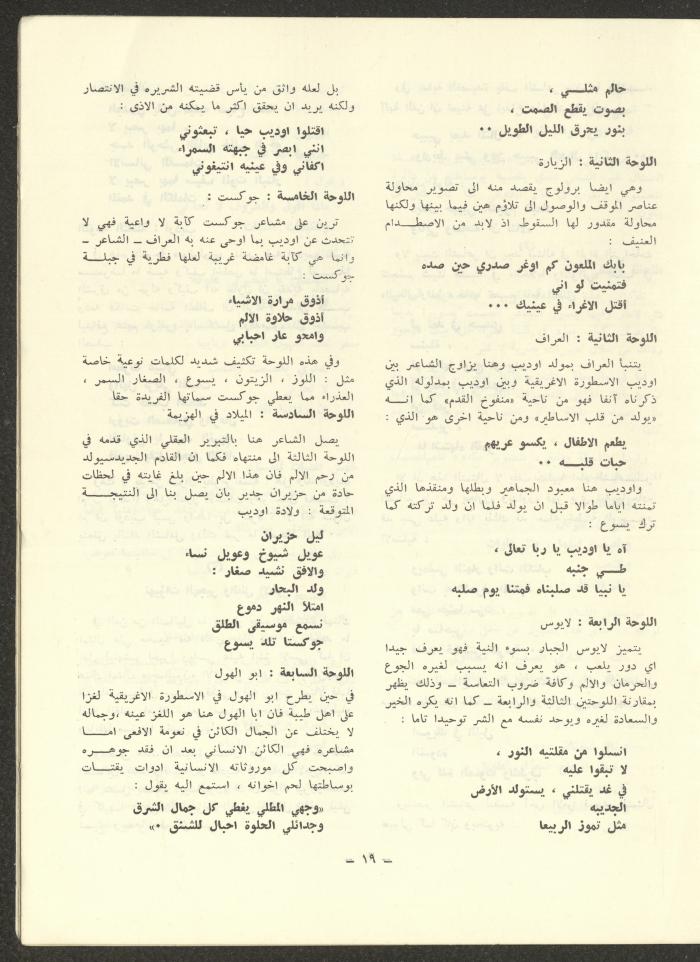 حالم مثلـــي ،
بصوت يقطع الصمت ،
بنور يحرق الليل الطويل ٠٠
اللوحة الثانية : الزيارة
وهي ايضا برولوج يقصد منه الى تصوير محاولة
عناصر الموقف والوصول الى تلاؤم هين فيما بينها ولكنها
محاولة مقدور لها السقوط اذ لابد من الاصطــدام
العنيف :
بابك الملعون كم اوغر صدري حين صده
فتمنيت لو اني
أقتل الاغراء في عينيك ٠٠٠
اللوحة الثانية : العراف
يتنبأ العراف بمولد اوديب وهنا يزاوج الشاعر بين
اوديب الاسطورة الاغريقية وبين اوديب بمدلوله الذي
ذكرناه آنفا فهو من ناحية «منفوخ القدم» كما انـــه
«يولد من قلب الاساطير» ومن ناحية اخرى هو الذي :
يطعم الاطفال ، يكسو عريهم
حبات قلبـــه ٠٠
واوديب هنا معبود الجماهير وبطلها ومنقذها الذي
تمنته اياما طوالا قبل ان يولد فلما ان ولد تركته كما
ترك يسوع :
آه يا اوديب يا ربا تعالى ،
طـــي جنبه
يا نبيا قد صلبناه فمتنا يوم صلبه
اللوحة الرابعة : لايوس
يتميز لايوس الجبار بسوء النية فهو يعرف جيدا
اي دور يلعب ، هو يعرف انه يسبب لغيره الجوع
والحرمان والالم وكافة ضروب التعاسة ــ وذلك يظهر
بمقارنة اللوحتين الثالثة والرابعة ــ كما انه يكره الخير
والسعادة لغيره ويوحد نفسه مع الشر توحيدا تاما :
انسلوا من مقلتيه النور ،
لا تبقوا عليه
في غد يقتلني ، يستولد الأرض
الجديبه
مثل تموز الربيعا
بل لعله واثق من يأس قضيته الشريره في الانتصار
ولكنه يريد ان يحقق اكثر ما يمكنه من الاذى :
اقتلوا اوديب حيا ، تبعثوني
انني ابصر في جبهته السمراء
اكفاني وفي عينيه انتيغوني
اللوحة الخامسة : جوكست :
ترين على مشاعر جوكست كآبة لا واعية فهي لا
تتحدث عن اوديب بما اوحى عنه به العراف ــ الشاعر ــ
وانما هي كآبة غامضة غريبة لعلها فطرية في جبلــة
جوكست :
أذوق مرارة الاشياء
أذوق حلاوة الالم
وامحو عار احبابي
وفي هذه اللوحة تكثيف شديد لكلمات نوعية خاصة
مثل : اللوز ، الزيتون ، يسوع ، الصغار السمر ،
العذراء مما يعطي جوكست سماتها الفريدة حقا
اللوحة السادسة : الميلاد في الهزيمة
يصل الشاعر هنا بالتبرير العقلي الذي قدمه في
اللوحة الثالثة الى منتهاه فكما ان القادم الجديدسيولد
من رحم الالم فان هذا الالم حين بلغ غايته في لحظات
حادة من حزيران جدير بان يصل بنا الى النتيجـــة
المتوقعة : ولادة اوديب
ليل حزيران
عويل شيوخ وعويل نساء
والافق نشيد صغار :
ولد البحار
امتلأ النهر دموع
نسمع موسيقى الطلق
جوكستا تلد يسوع
اللوحة السابعة : ابو الهول
في حين يطرح ابو الهول في الاسطورة الاغريقية لغزا
على اهل طيبة فان ابا الهول هنا هو اللغز عينه ،وجماله
لا يختلف عن الجمال الكائن في نعومة الافعى امـــا
مشاعره فهي الكائن الانساني بعد ان فقد جوهـــره
واصبحت كل موروثاته الانسانية ادوات يقتـــات
بوساطتها لحم اخوانه ، استمع اليه يقول :
«وجهي المطلي يغطي كل جمال الشرق
وجدائلي الحلوة احبال للشنق ٠»
ــ ١٩ ــ